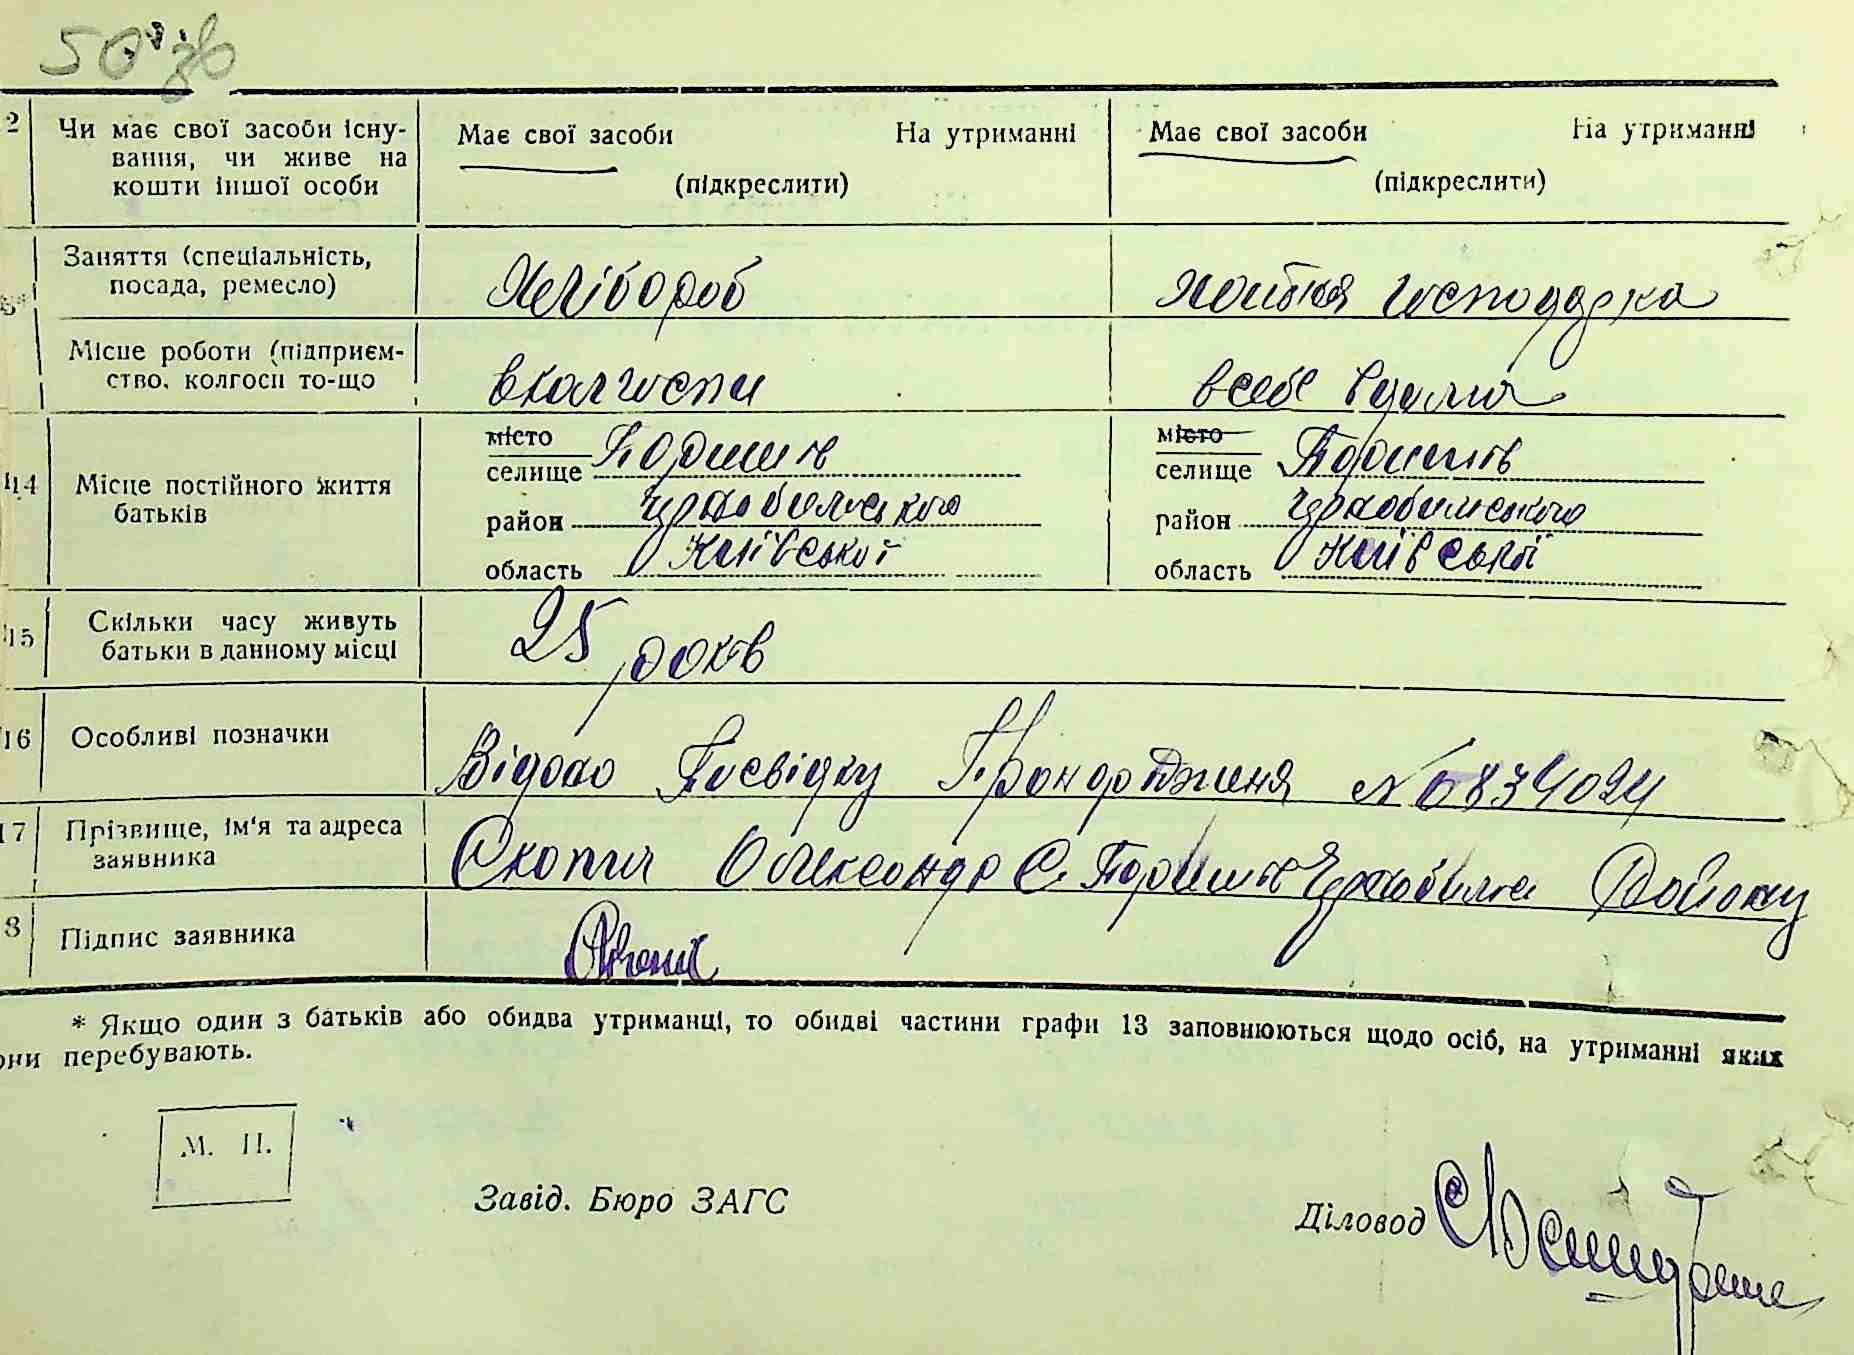 50 зв
2 Чи має свої засоби існу-
вання, чи живе на
кошти іншої особи
Має свої засоби На утриманні
(підкреслити)
Має свої засоби На утриманні
(підкреслити)
Заняття (спеціальність,
посада, ремесло)
Хлібороб
хатня господарка
Місце роботи (підприєм-
ство, колгосп то-що
в колгоспи
в себе вдома
14 Місце постійного життя
батьків
місто
селище
район Чорнобильського
область Київської
місто
селище
район Чорнобильського
область Київської
15 Скільки часу живуть
батьки в данному місці
25 років
16 Особливі позначки
Видано Посвідку №6834024
17 Прізвище, ім'я та адреса
заявника
Олександр С. Району
8 Підпис заявника
* Якщо один з батьків або обидва утриманці, то обидві частини графи 13 заповнюються щодо осіб, на утриманні яких
они перебувають.
М. П.
Завід. Бюро ЗАГС
Діловод